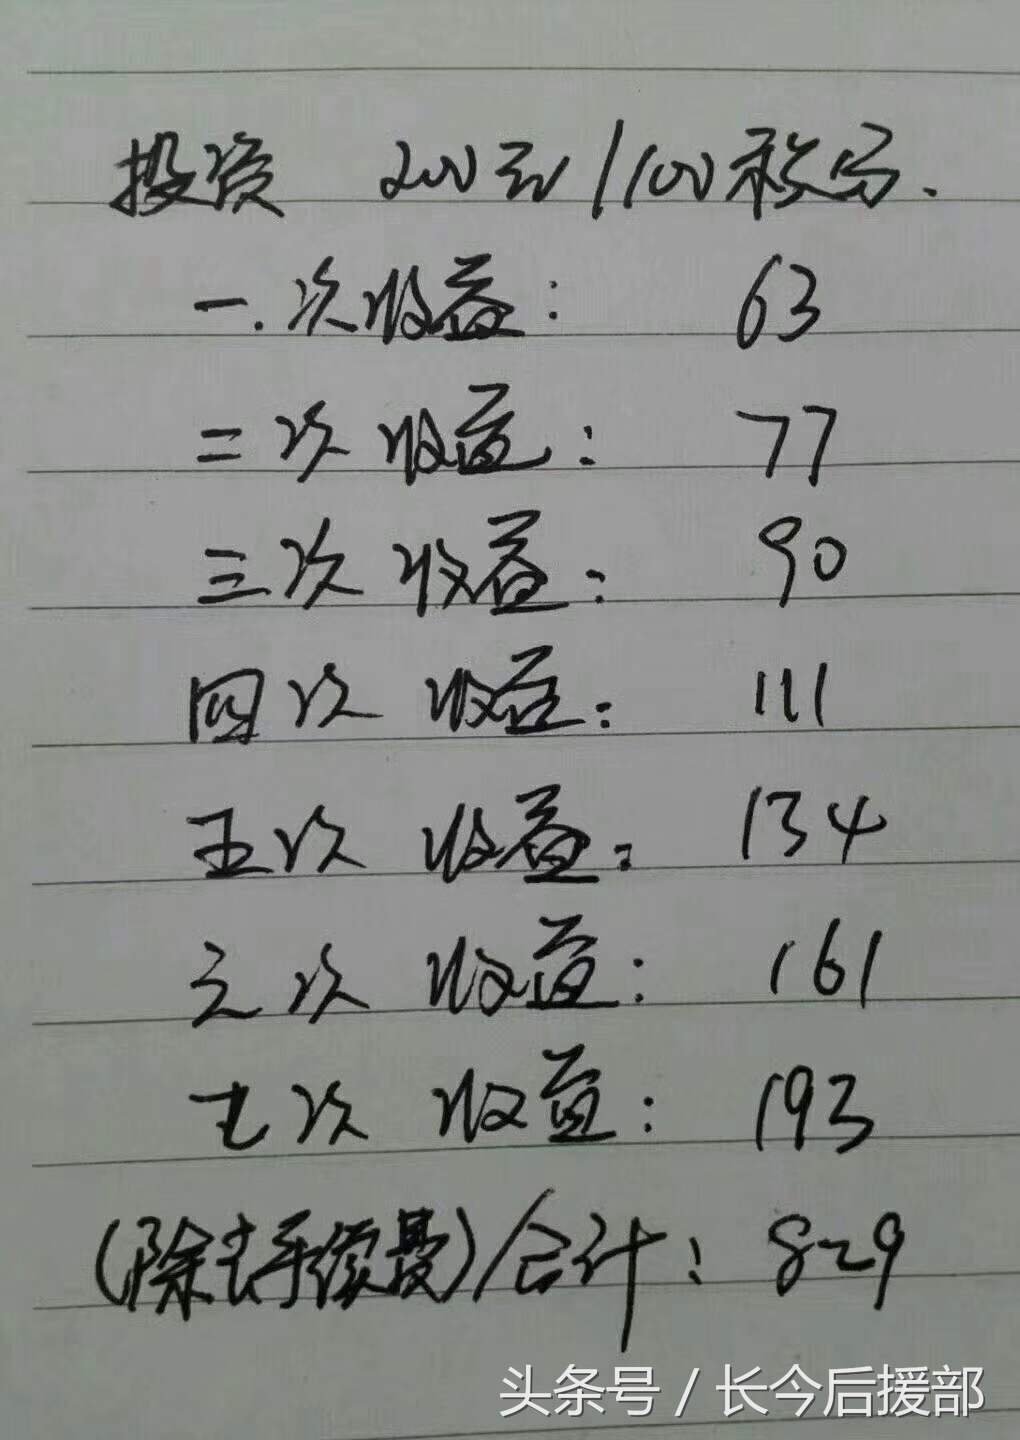 投资 200元/100积分.
一.次收益: 63
二次收益: 77
三次收益: 90
四次收益: 111
五次收益: 134
六次收益: 161
七次收益: 193
(除去手续费)合计: 829
头条号 / 长今后援部